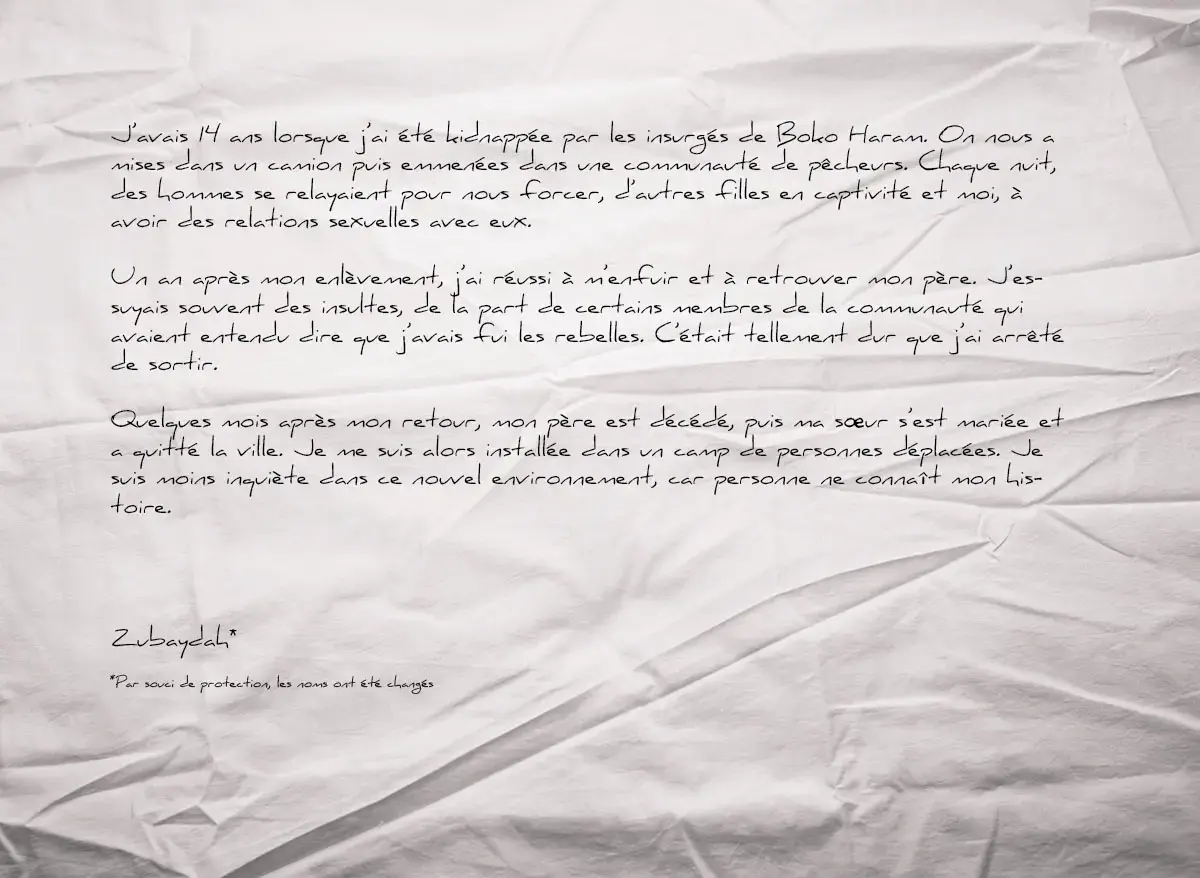 J'avais 14 ans lorsque j'ai été kidnappée par les insurgés de Boko Haram. On nous a
mises dans un camion puis emmenées dans une communauté de pêcheurs. Chaque nuit,
des hommes se relayaient pour nous forcer, d'autres filles en captivité et moi, à
avoir des relations sexuelles avec eux.
Un an après mon enlèvement, j'ai réussi à m'enfuir et à retrouver mon père. J'es-
suyais souvent des insultes, de la part de certains membres de la communauté qui
avaient entendu dire que j'avais fui les rebelles. C'était tellement dur que j'ai arrêté
de sortir.
Quelques mois après mon retour, mon père est décédé, puis ma sœur s'est mariée et
a quitté la ville. Je me suis alors installée dans un camp de personnes déplacées. Je
suis moins inquiète dans ce nouvel environnement, car personne ne connaît mon his-
toire.
Zubaydah*
*Par souci de protection, les noms ont été changés